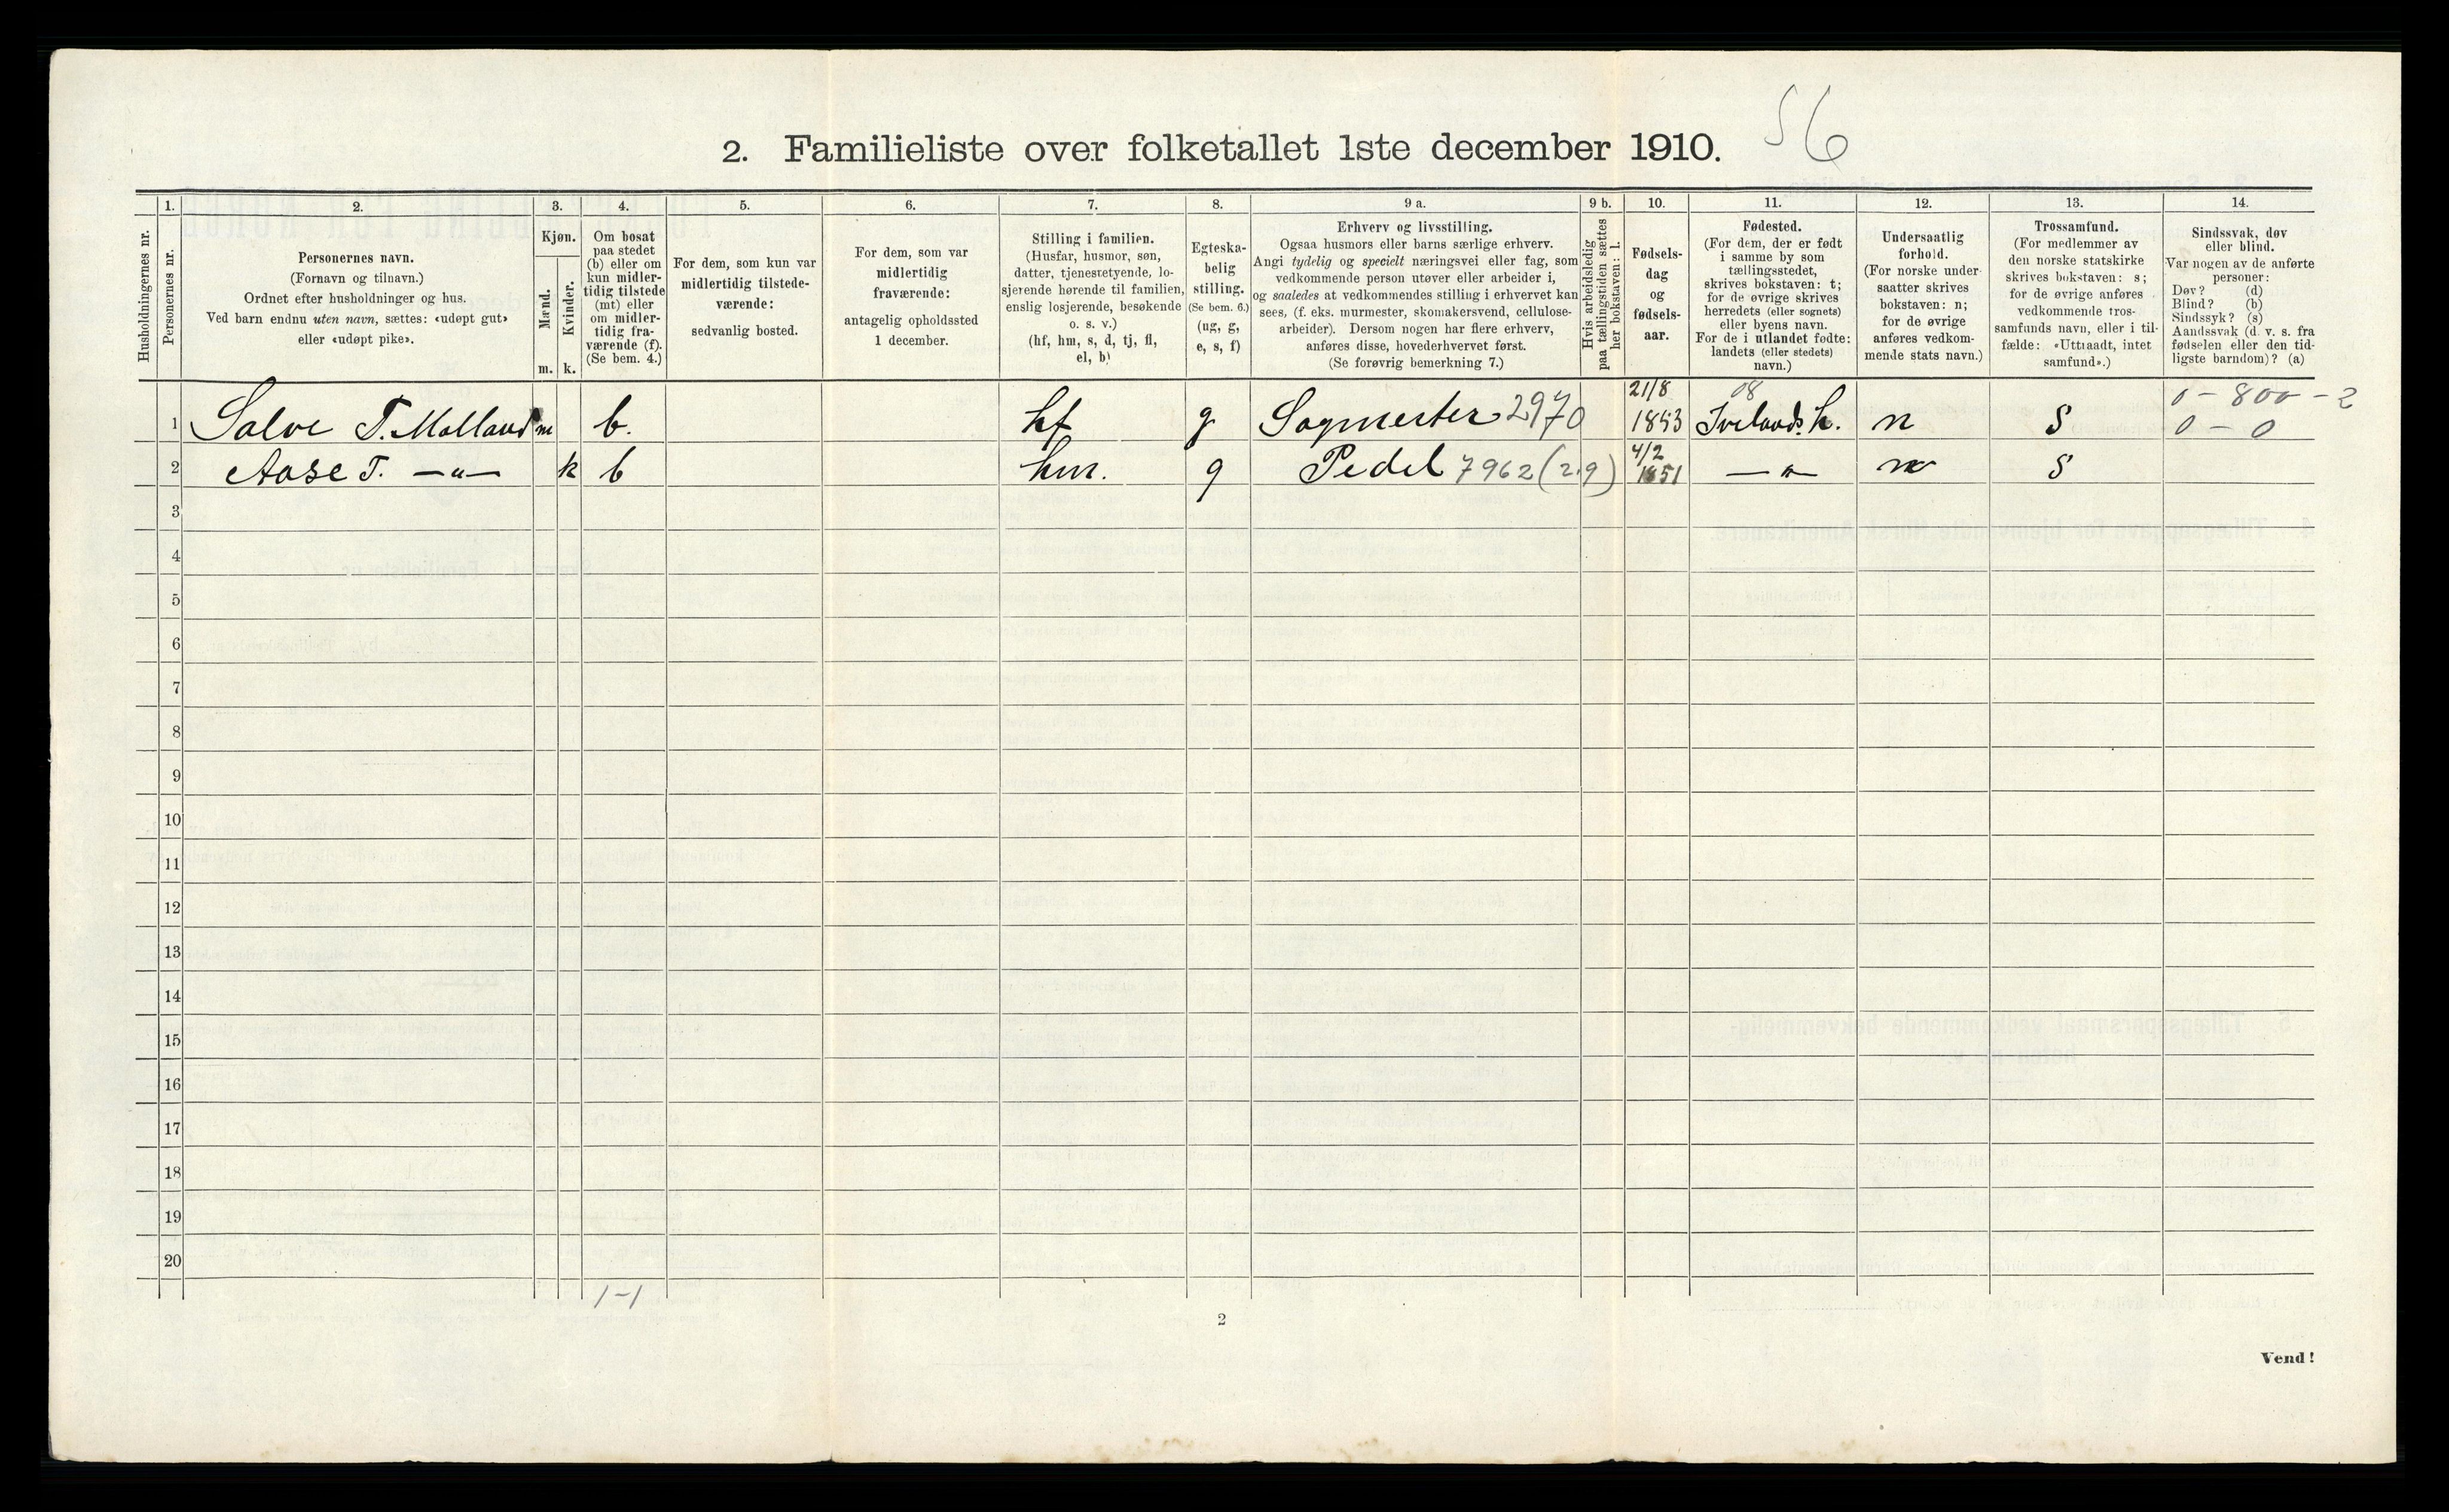 56
2. Familieliste over folketallet 1ste december 1910.
Husholdningernes nr.
1.
Personernes nr.
2.
Personernes navn.
(Fornavn og tilnavn.)
Ordnet efter husholdninger og hus.
Ved barn endnu uten navn, sættes: «udøpt gut»
eller «udøpt pike».
3.
Kjøn.
Mænd.
Kvinder.
m. k.
4.
Om bosat
paa stedet
(b) eller om
kun midler-
tidig tilstede
(mt) eller
om midler-
tidig fra-
værende (f).
(Se bem. 4.)
5.
For dem, som kun var
midlertidig tilstede-
værende:
sedvanlig bosted.
6.
For dem, som var
midlertidig
fraværende:
antagelig opholdssted
1 december.
7.
Stilling i familien.
(Husfar, husmor, søn,
datter, tjenestetyende, lo-
sjerende hørende til familien,
enslig losjerende, besøkende
o. s. v.)
(hf, hm, s, d, tj, fl,
el, b)
8.
Egteska-
belig
stilling.
(Se bem. 6.)
(ug, g,
e, s, f)
9 a.
Erhverv og livsstilling.
Ogsaa husmors eller barns særlige erhverv.
Angi tydelig og specielt næringsvei eller fag, som
vedkommende person utøver eller arbeider i,
og saaledes at vedkommendes stilling i erhvervet kan
sees, (f. eks. murmester, skomakersvend, cellulose-
arbeider). Dersom nogen har flere erhverv,
anføres disse, hovederhvervet først.
(Se forøvrig bemerkning 7.)
9 b.
Hvis arbeidsledig
paa tællingstiden sættes
her bokstaven: l.
10.
Fødsels-
dag
og
fødsels-
aar.
11.
Fødested.
(For dem, der er født
i samme by som
tællingsstedet,
skrives bokstaven: t;
for de øvrige skrives
herredets (eller sognets)
eller byens navn.
For de i utlandet fødte:
landets (eller stedets)
navn.)
12.
Undersaatlig
forhold.
(For norske under-
saatter skrives
bokstaven: n;
for de øvrige
anføres vedkom-
mende stats navn.)
13.
Trossamfund.
(For medlemmer av
den norske statskirke
skrives bokstaven: s;
for de øvrige anføres
vedkommende tros-
samfunds navn, eller i til-
fælde: «Uttraadt, intet
samfund».)
14.
Sindssvak, døv
eller blind.
Var nogen av de anførte
personer:
Døv? (d)
Blind? (b)
Sindssyk? (s)
Aandssvak (d. v. s. fra
fødselen eller den tid-
ligste barndom)? (a)
1 Salve T. Molland m b. hf g Sagmester 2970 21/8 1853 08 Ivelands h. n S 0 - 800 - 2
0 - 0
2 Aase T. —"— k b hm. g Pedel 7962 (29) 4/2 1851 —"— n S
3
4
5
6
7
8
9
10
11
12
13
14
15
16
17
18
19
20
1-1
2
Vend!